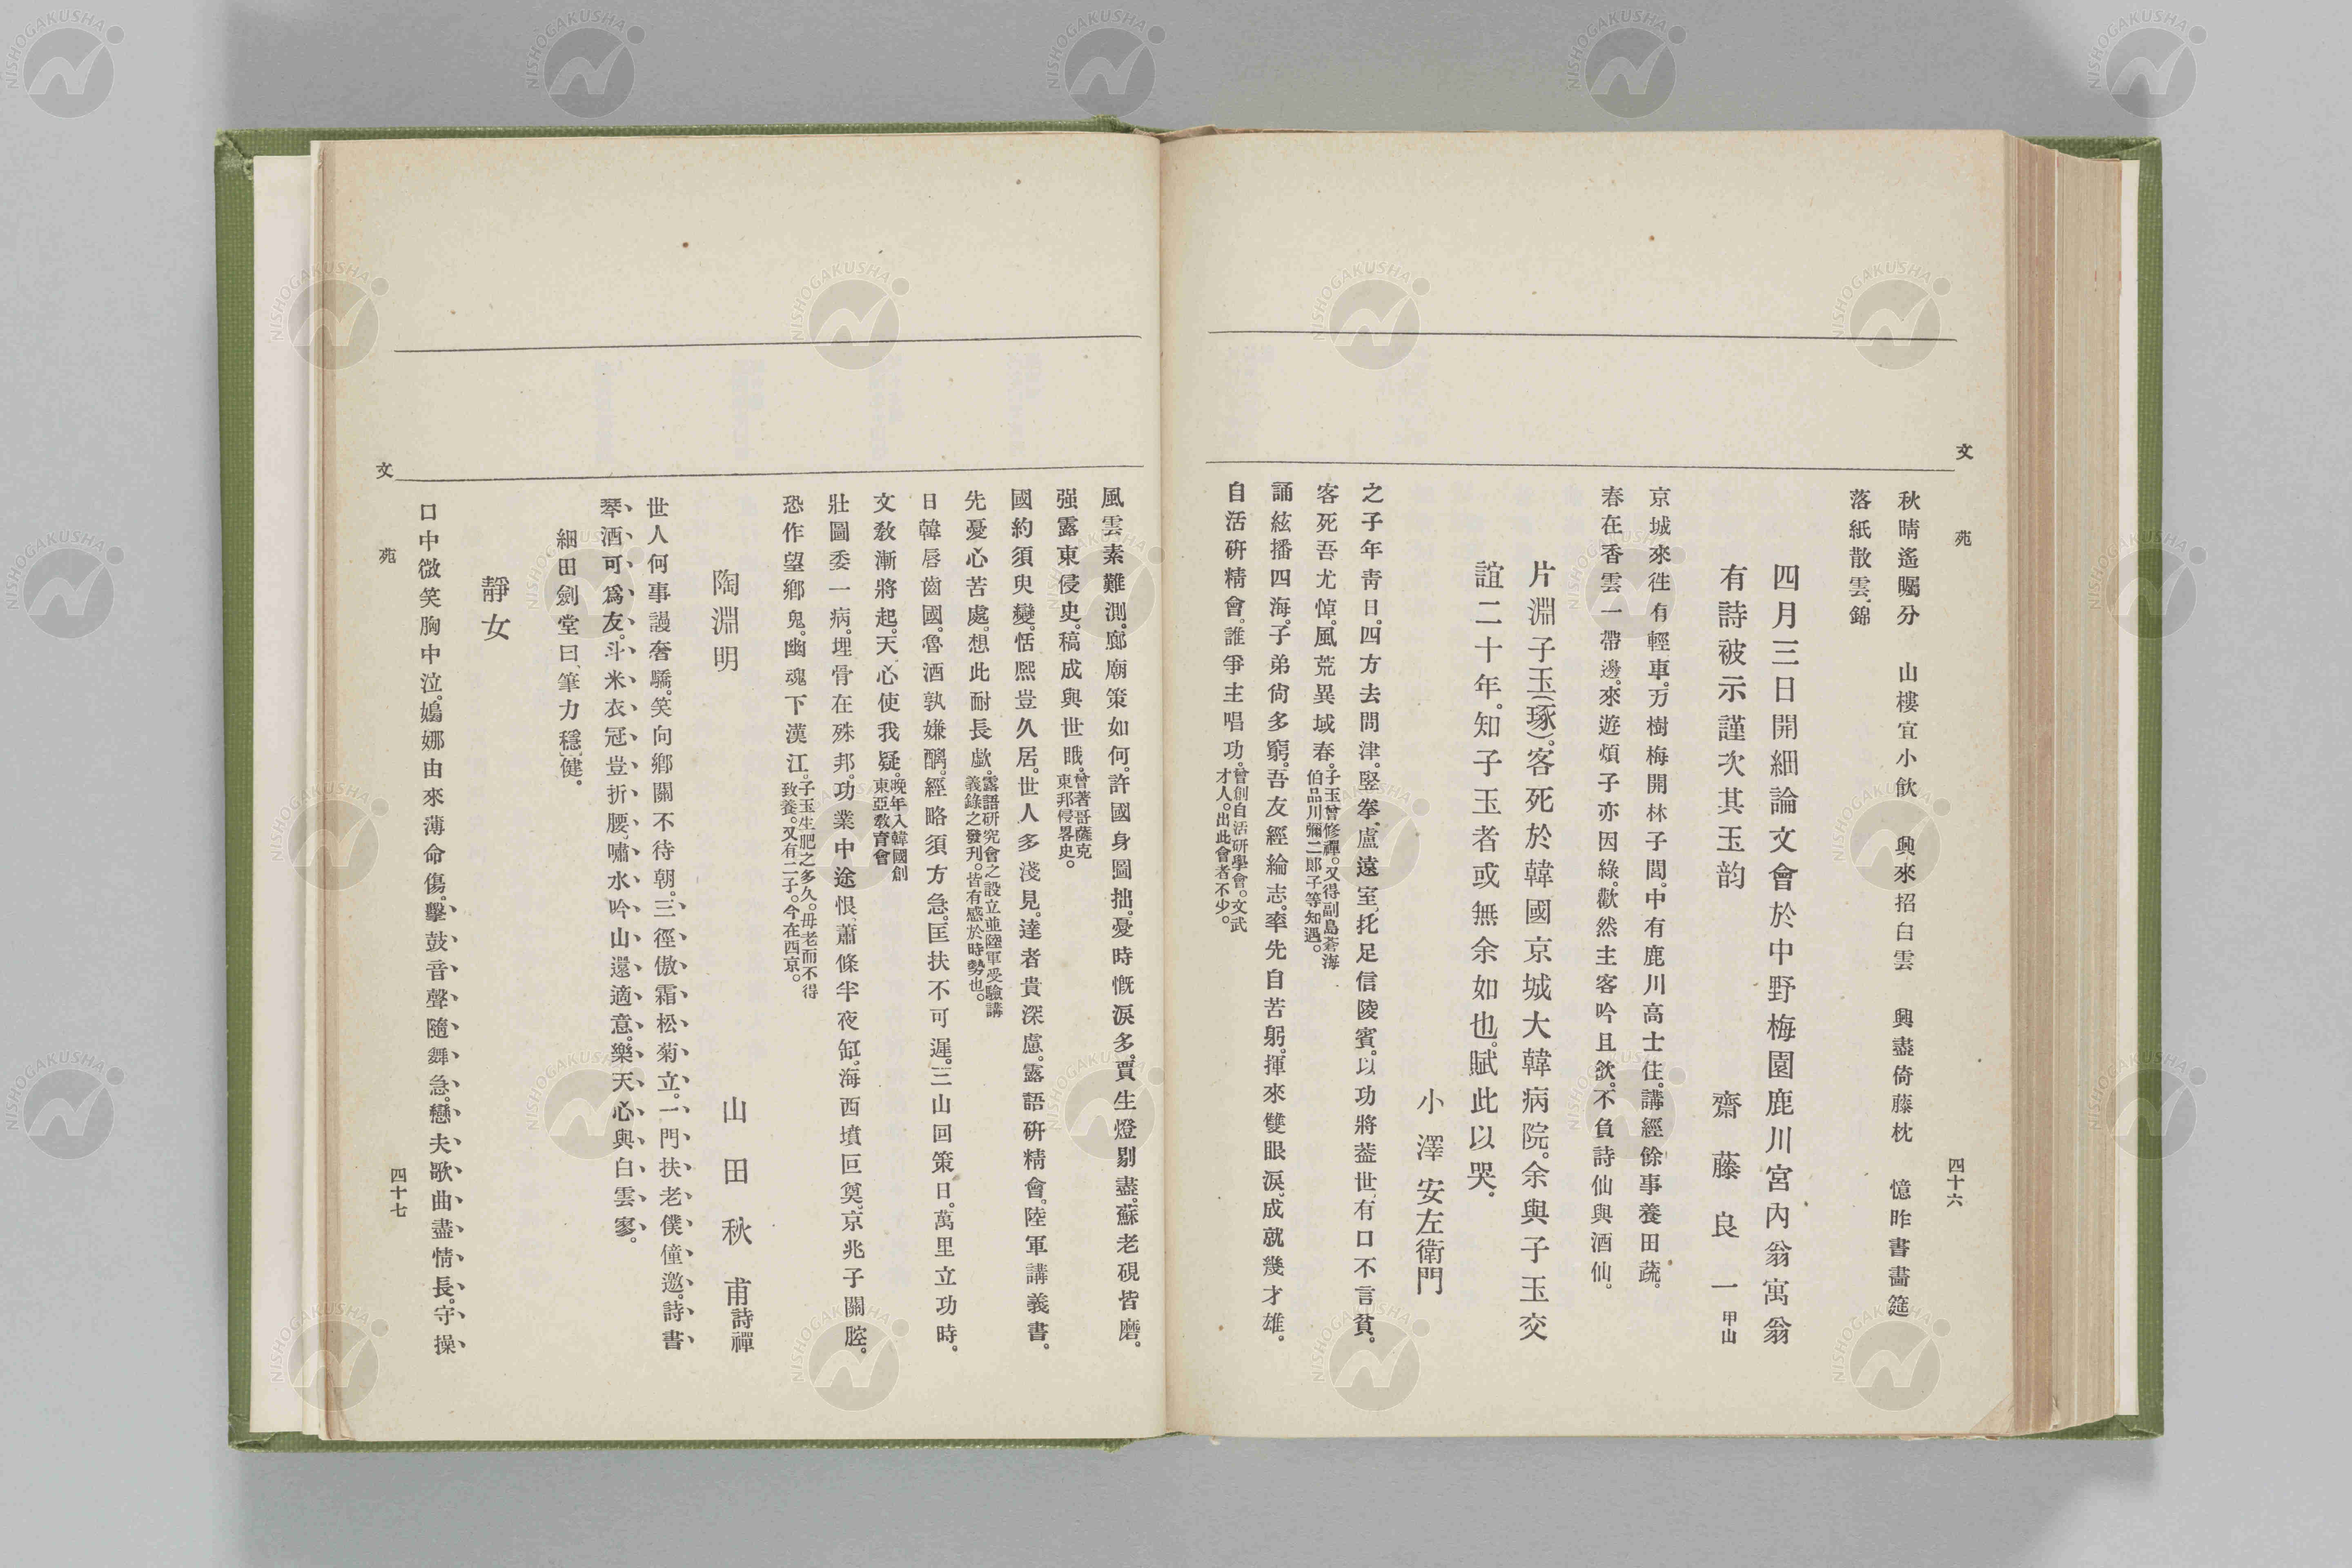 文苑
四十六
秋晴遙矚分　山樓宜小飮　興來招白雲　興盡倚藤枕　憶昨書畵筵
落紙散雲錦
四月三日開細論文會於中野梅園鹿川宮內翁寓翁
有詩被示謹次其玉韵
齋藤良一甲山
京城來徃有輕車。万樹梅開林子閭。中有鹿川高士住。講經餘事養田蔬。
春在香雲一帶邊。來遊煩子亦因綠。歡然主客吟且飮。不負詩仙與酒仙。
片淵子玉(琢)。客死於韓國京城大韓病院。余與子玉交
誼二十年。知子玉者或無余如也。賦此以哭。
小澤安左衛門
之子年靑日。四方去問津。竪拳盧遠室、托足信陵賓。以功將葢世、有口不言貧。
客死吾尤悼。風荒異域春。子玉曾修禪。又得副島蒼海
伯品川彌二郎子等知遇。
誦絃播四海。子弟尙多窮。吾友經綸志。率先自苦躬。揮來雙眼淚、成就幾才雄。
自活硏精會。誰爭主唱功。曾創自活硏學會。文武
才人。出此會者不少。
風雲素難測。廊廟策如何。許國身圖拙。憂時慨淚多。賈生燈剔盡。蘇老硯皆磨。
强露東侵史。稿成與世睋。曾著哥薩克
東邦侵畧史。
國約須臾變。恬熙豈久居。世人多淺見。達者貴深慮。露語硏精會。陸軍講義書。
先憂心苦處。想此耐長歔。露語硏究會之設立並陸軍受驗講
義錄之發刊。皆有感於時勢也。
日韓唇齒國。魯酒孰嫌醨。經略須方急。匡扶不可遲。三山回策日。萬里立功時。
文敎漸將起。天心使我疑。晚年入韓國創
東亞敎育會
壯圖委一病。埋骨在殊邦。功業中途恨、蕭條半夜缸。海西墳叵奠、京兆子關腔。
恐作望鄕鬼。幽魂下漢江。子玉生肥之多久。毋老而不得
致養。又有二子。今在西京。
陶淵明
山田秋甫詩禪
世人何事謾奢驕。笑向鄕關不待朝。三徑傲霜松菊立。一門扶老僕僮邀。詩書
琴酒可爲友。斗米衣冠豈折腰。嘯水吟山還適意。樂天心與白雲寥。
細田劍堂曰、筆力穩健。
靜女
口中微笑胸中泣。嫋娜由來薄命傷。擊鼓音聲隨舞急。戀夫歌曲盡情長。守操
文苑
四十七